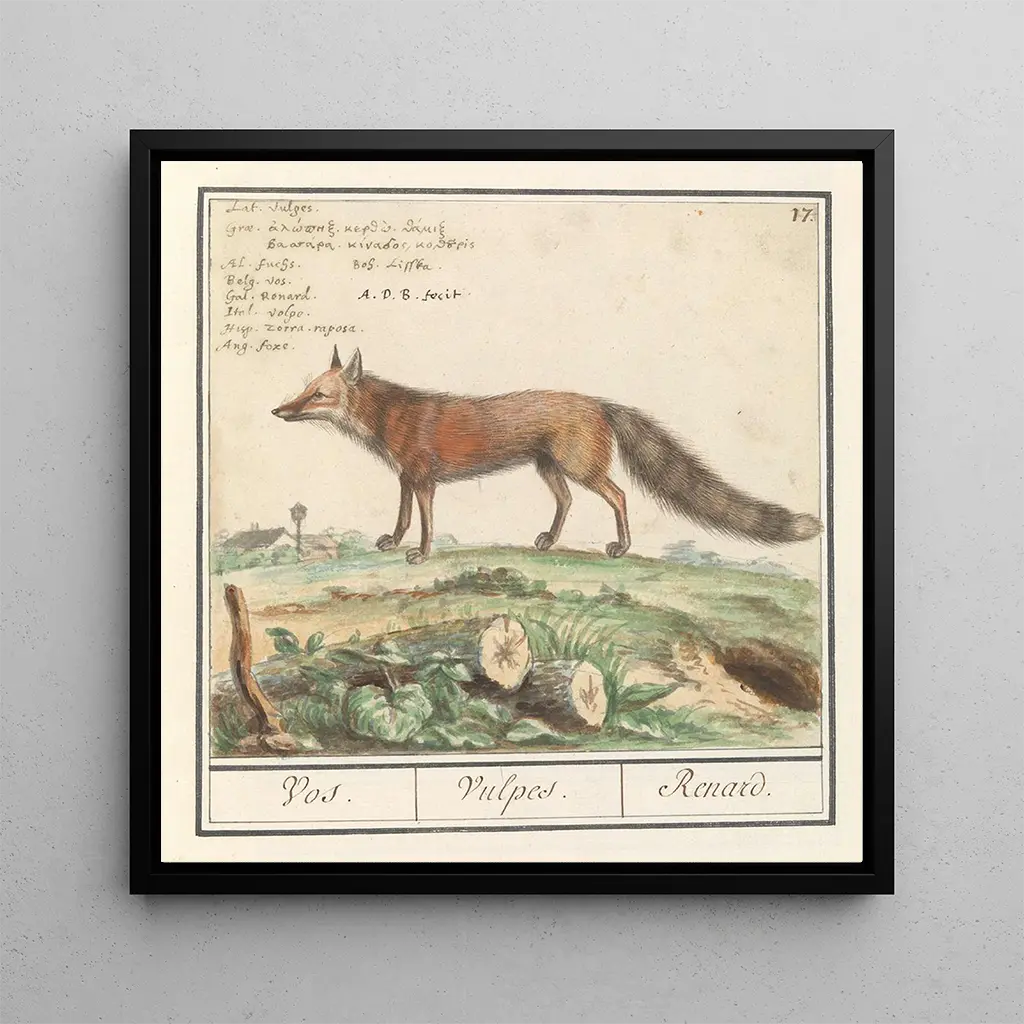 Lat. Vulpes.
17.
Græ. ἀλώπηξ. κερδὼ. θάμιξ
βασσαρα. κίναδος, κοθȣρις
Al. fuchs. Boh. Lisska.
Belg. Vos.
Gal. Renard. A. D. B. fecit.
Ital. Volpo.
Hisp. Zorra. raposa.
Ang. foxe.
Vos. Vulpes. Renard.